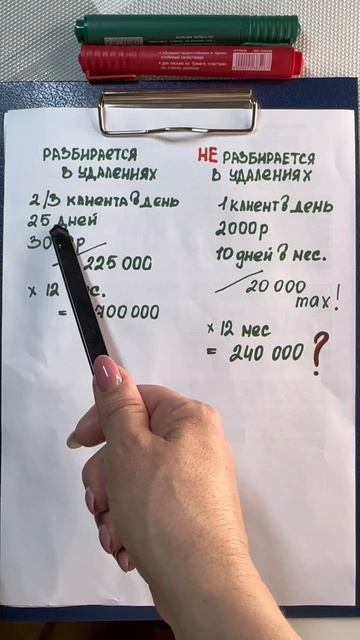 РАЗБИРАЕТСЯ
В УДАЛЕНИЯХ
2/3 клиента в день
25 дней
30 р
225 000
х 12 мес.
= 700 000
НЕ РАЗБИРАЕТСЯ
В УДАЛЕНИЯХ
1 клиент в день
2000р
10 дней в мес.
20 000
max!
х 12 мес
= 240 000 ?